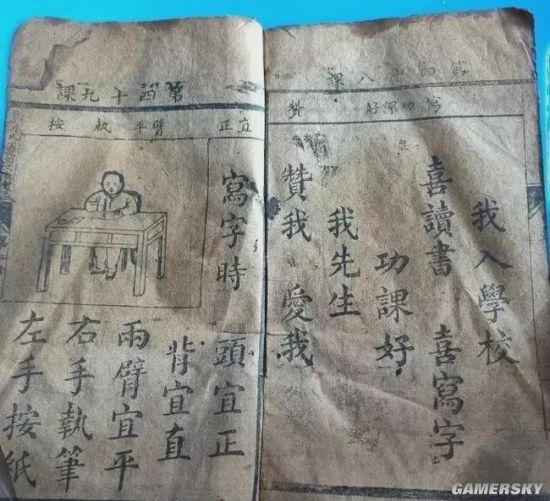 第四十八課
寫 功課好 贊
我入學校
喜讀書 喜寫字
功課好
我先生
贊我 愛我
第四十九課
宜正 臂平 執 按
寫字時 頭宜正
背宜直
兩臂宜平
右手執筆
左手按紙
GAMERSKY